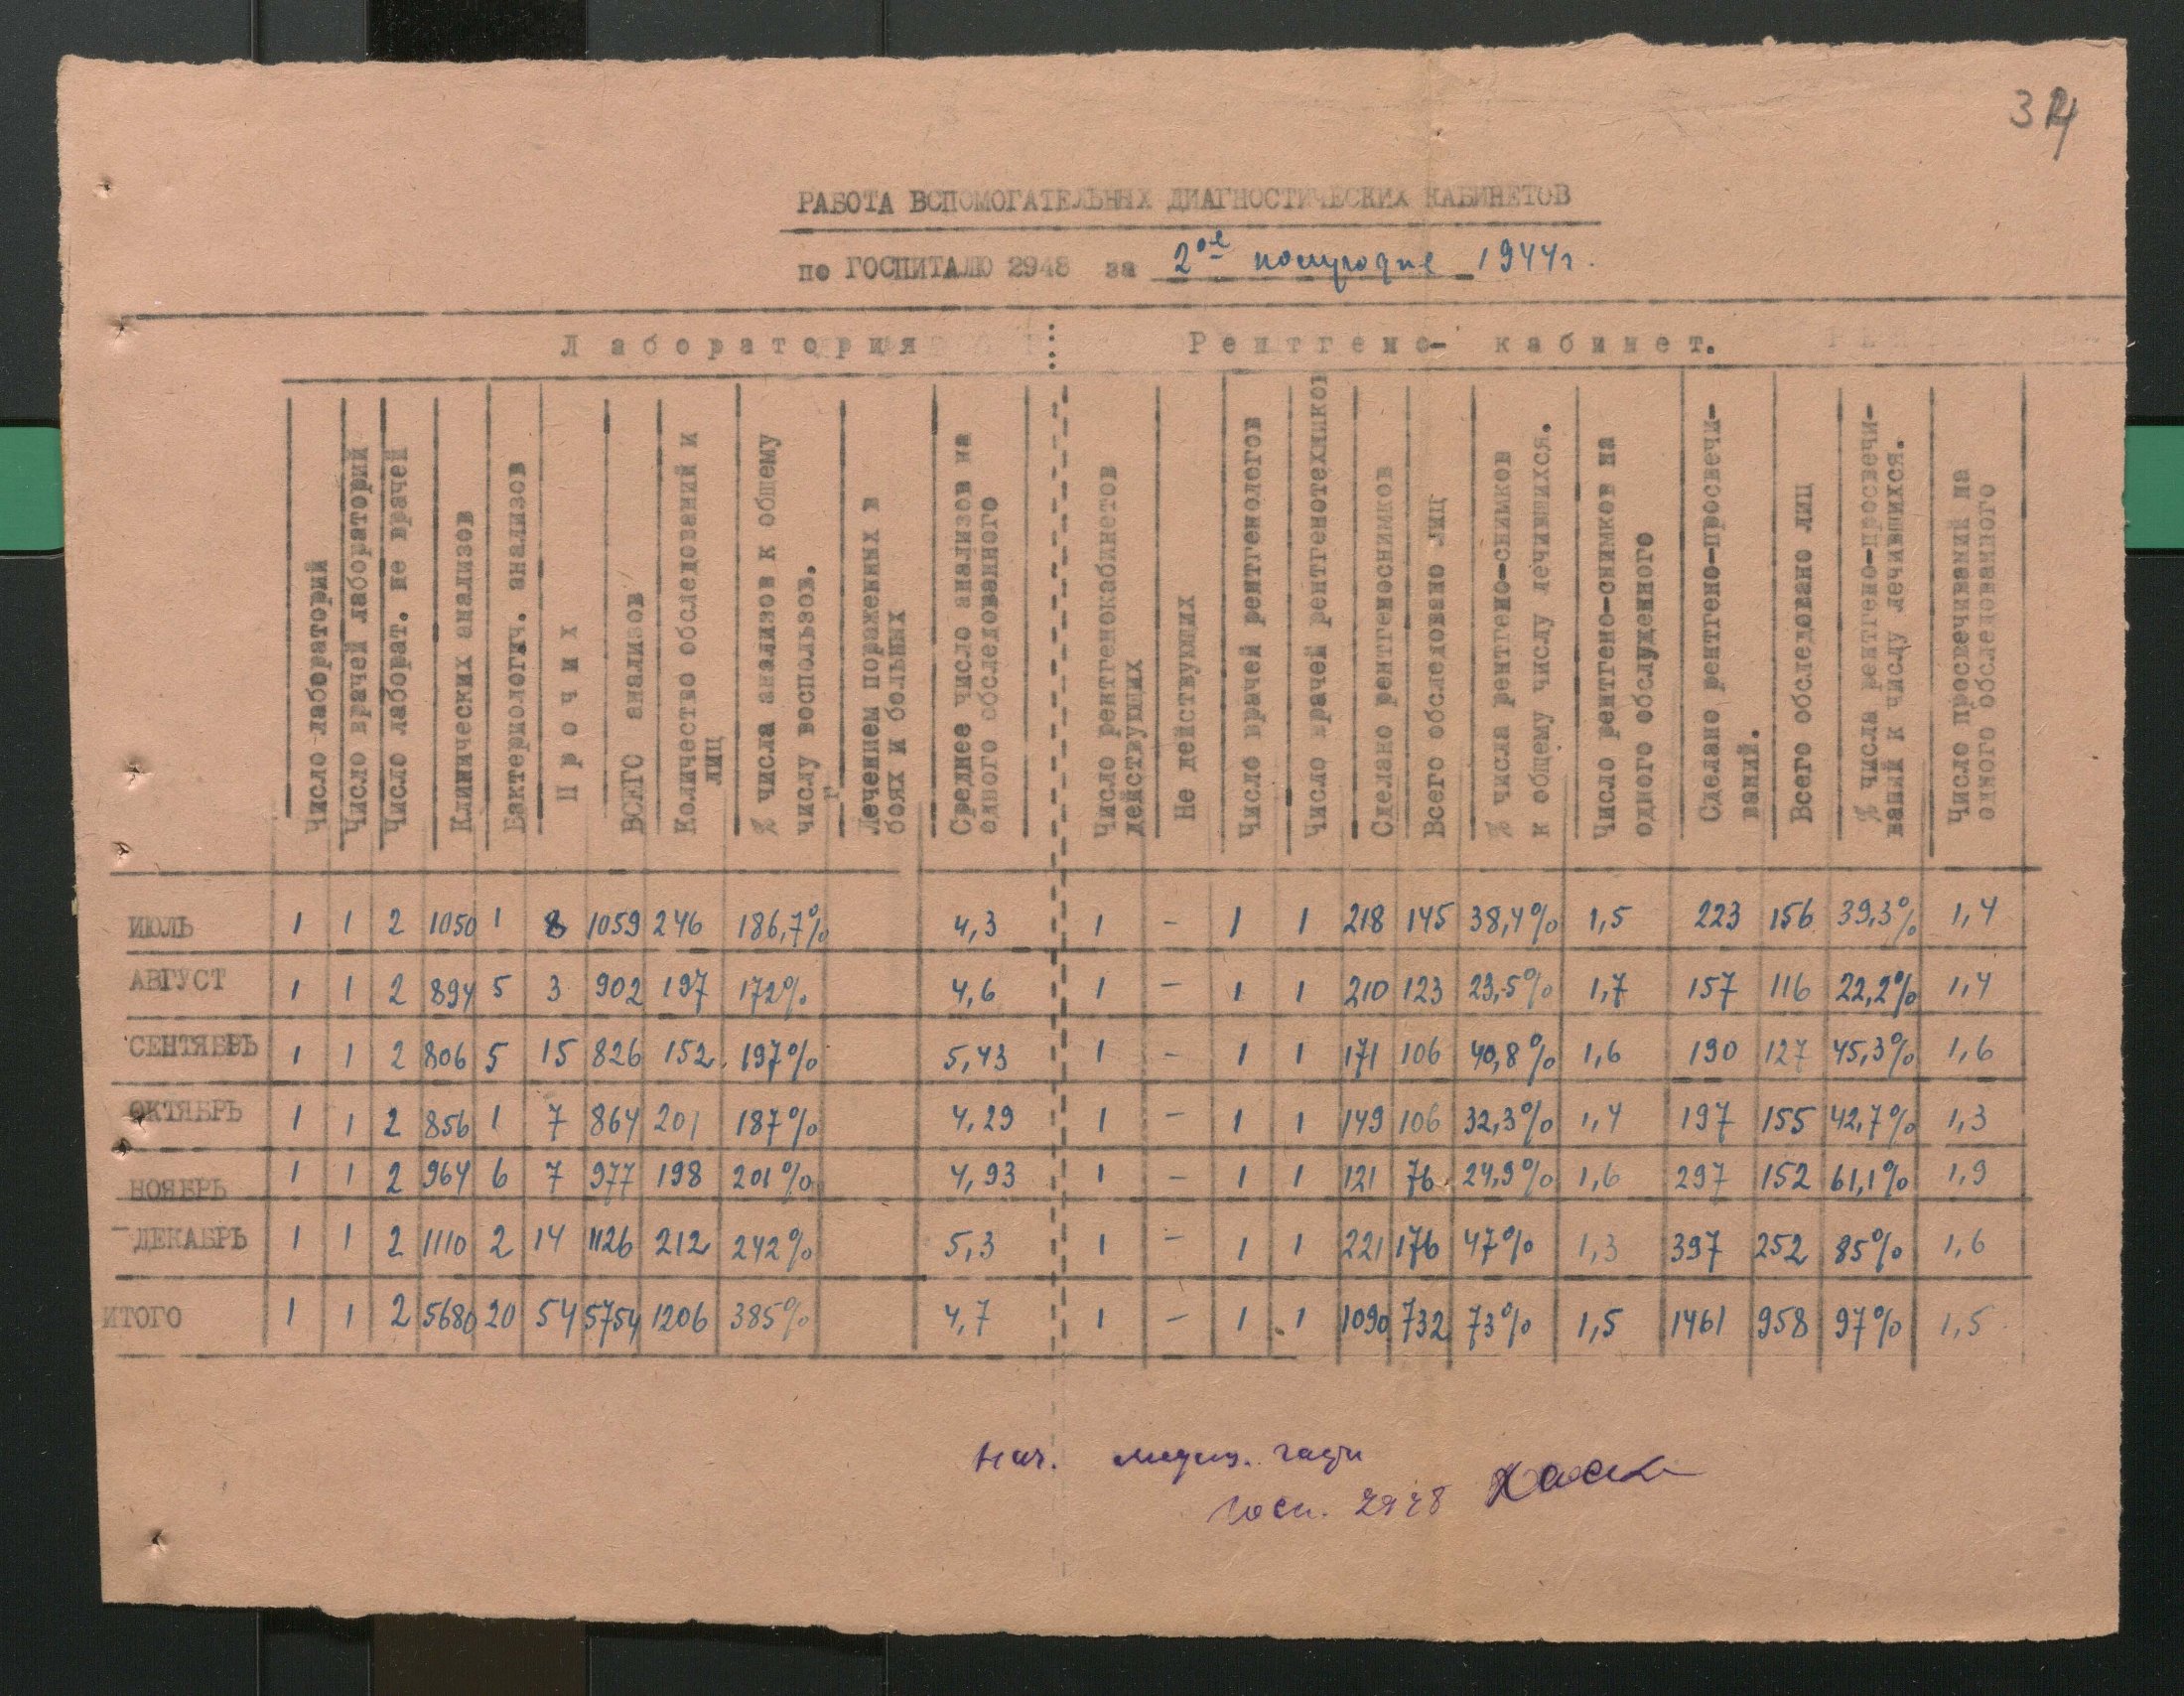 34
РАБОТА ВСПОМОГАТЕЛЬНЫХ ДИАГНОСТИЧЕСКИХ КАБИНЕТОВ
по ГОСПИТАЛЮ 2948 за 2ое полугодие 1944г.
Лаборатория Рентгено- кабинет.
Число лабораторий
Число врачей лабораторий
Число лаборат. не врачей
Клинических анализов
Бактериологич. анализов
Прочих
ВСЕГО анализов
Количество обследований и лиц
% числа анализов к общему числу воспользов.
Лечением пораженных в боях и больных
Среднее число анализов на одного обследованного
Число рентгенокабинетов действующих
Не действующих
Число врачей рентгенологов
Число врачей рентгенотехников
Сделано рентгеноснимков
Всего обследовано лиц
% числа рентгено-снимков к общему числу лечившихся.
Число рентгено-снимков на одного обслуженного
Сделано рентгено-просвечи-ваний.
Всего обследовано лиц
% числа рентгено-просвечи-ваний к числу лечившихся.
Число просвечиваний на одного обследованного
ИЮЛЬ 1 1 2 1050 1 8 1059 246 186,7% 4,3 1 - 1 1 218 145 38,4% 1,5 223 156 39,3% 1,4
АВГУСТ 1 1 2 894 5 3 902 197 172% 4,6 1 - 1 1 210 123 23,5% 1,7 157 116 22,2% 1,4
СЕНТЯБРЬ 1 1 2 806 5 15 826 152 197% 5,43 1 - 1 1 171 106 40,8% 1,6 190 127 45,3% 1,6
ОКТЯБРЬ 1 1 2 856 1 7 864 201 187% 4,29 1 - 1 1 149 106 32,3% 1,4 197 155 42,7% 1,3
НОЯБРЬ 1 1 2 964 6 7 977 198 201% 4,93 1 - 1 1 121 76 24,9% 1,6 297 152 61,1% 1,9
ДЕКАБРЬ 1 1 2 1110 2 14 1126 212 242% 5,3 1 - 1 1 221 176 47% 1,3 397 252 85% 1,6
ИТОГО 1 1 2 5680 20 54 5754 1206 385% 4,7 1 - 1 1 1090 732 73% 1,5 1461 958 97% 1,5
Нач. медиц. части
Госп. 2948